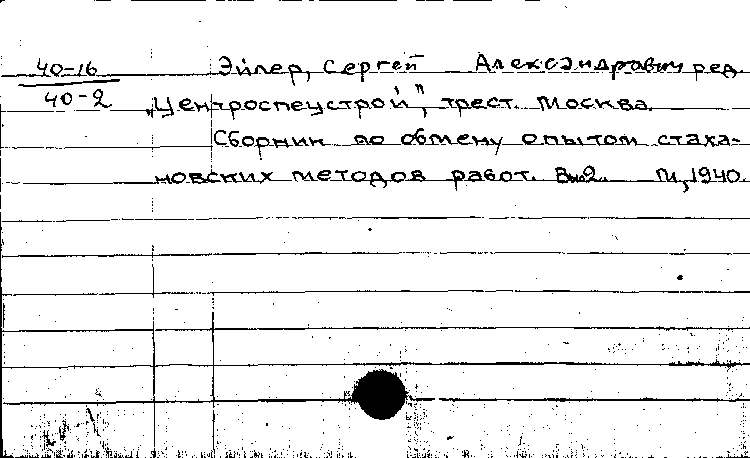 40-16 Эйлер, Сергей Александрович ред.
40-2 „Центроспецстрой", трест. Москва.
Сборник по обмену опытом стаха-
новских методов работ. Вып.2. М, 1940.